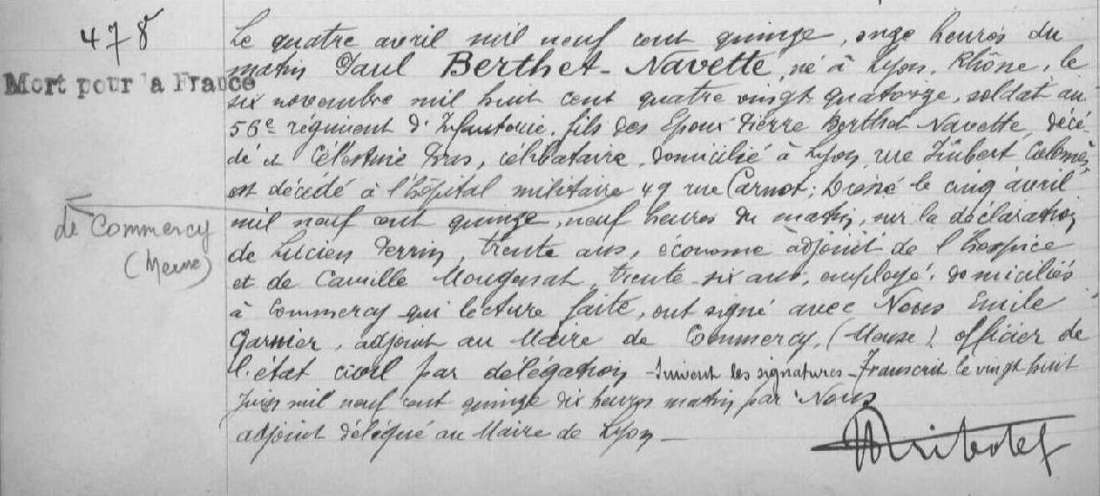 478
Mort pour la France
de Commercy
(Meuse)
Le quatre avril mil neuf cent quinze, onze heures du
matin Paul Berthet-Navette, né à Lyon, Rhône, le
six novembre mil huit cent quatre vingt quatorze, soldat au
56e régiment d'Infanterie, fils des Epoux Pierre Berthet Navette, décé-
dé et Célestine Bras, célibataire, domicilié à Lyon, rue Imbert Colomès,
est décédé à l'hôpital militaire 49 rue Carnot; Dressé le cinq avril
mil neuf cent quinze, neuf heures du matin, sur la déclaration
de Lucien Perrin, trente ans, économe adjoint de l'hospice
et de Camille Mougenat, trente-six ans, employé; domiciliés
à Commercy qui lecture faite, ont signé avec Nous Emile
Garnier, adjoint au Maire de Commercy, (Meuse) officier de
l'état civil par délégation - Suivent les signatures - Transcrit le vingt huit
mil neuf cent quinze dix heures matin par Nous
adjoint délégué au Maire de Lyon -